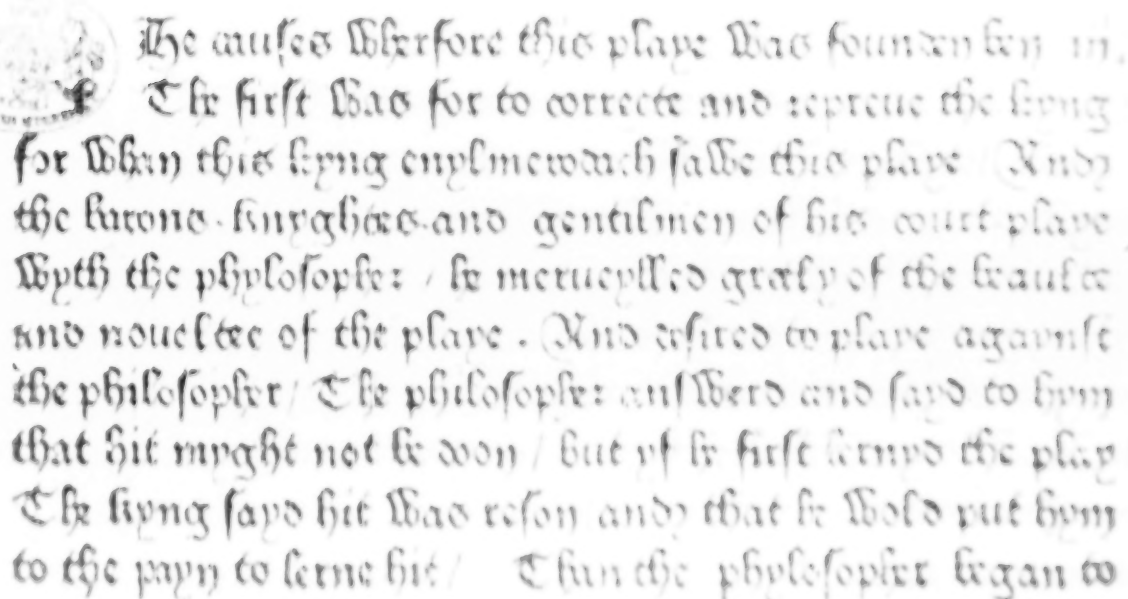 He causes wherfore this playe was founden ben iii.
The first was for to correcte and repreue the kyng
for whan this kyng enylmerodach sawe this playe / And
the barons . knyghtes . and gentilmen of his court playe
wyth the phylosopher / he merueylled gretly of the beaulte
and noueltee of the playe . And desired to playe agaynst
the philosopher / The philosopher answerd and sayd to hym
that hit myght not be doon / but yf he first lernyd the play
The kyng sayd hit was reson and that he wold put hym
to the payn to lerne hit / Than the phylosopher began to